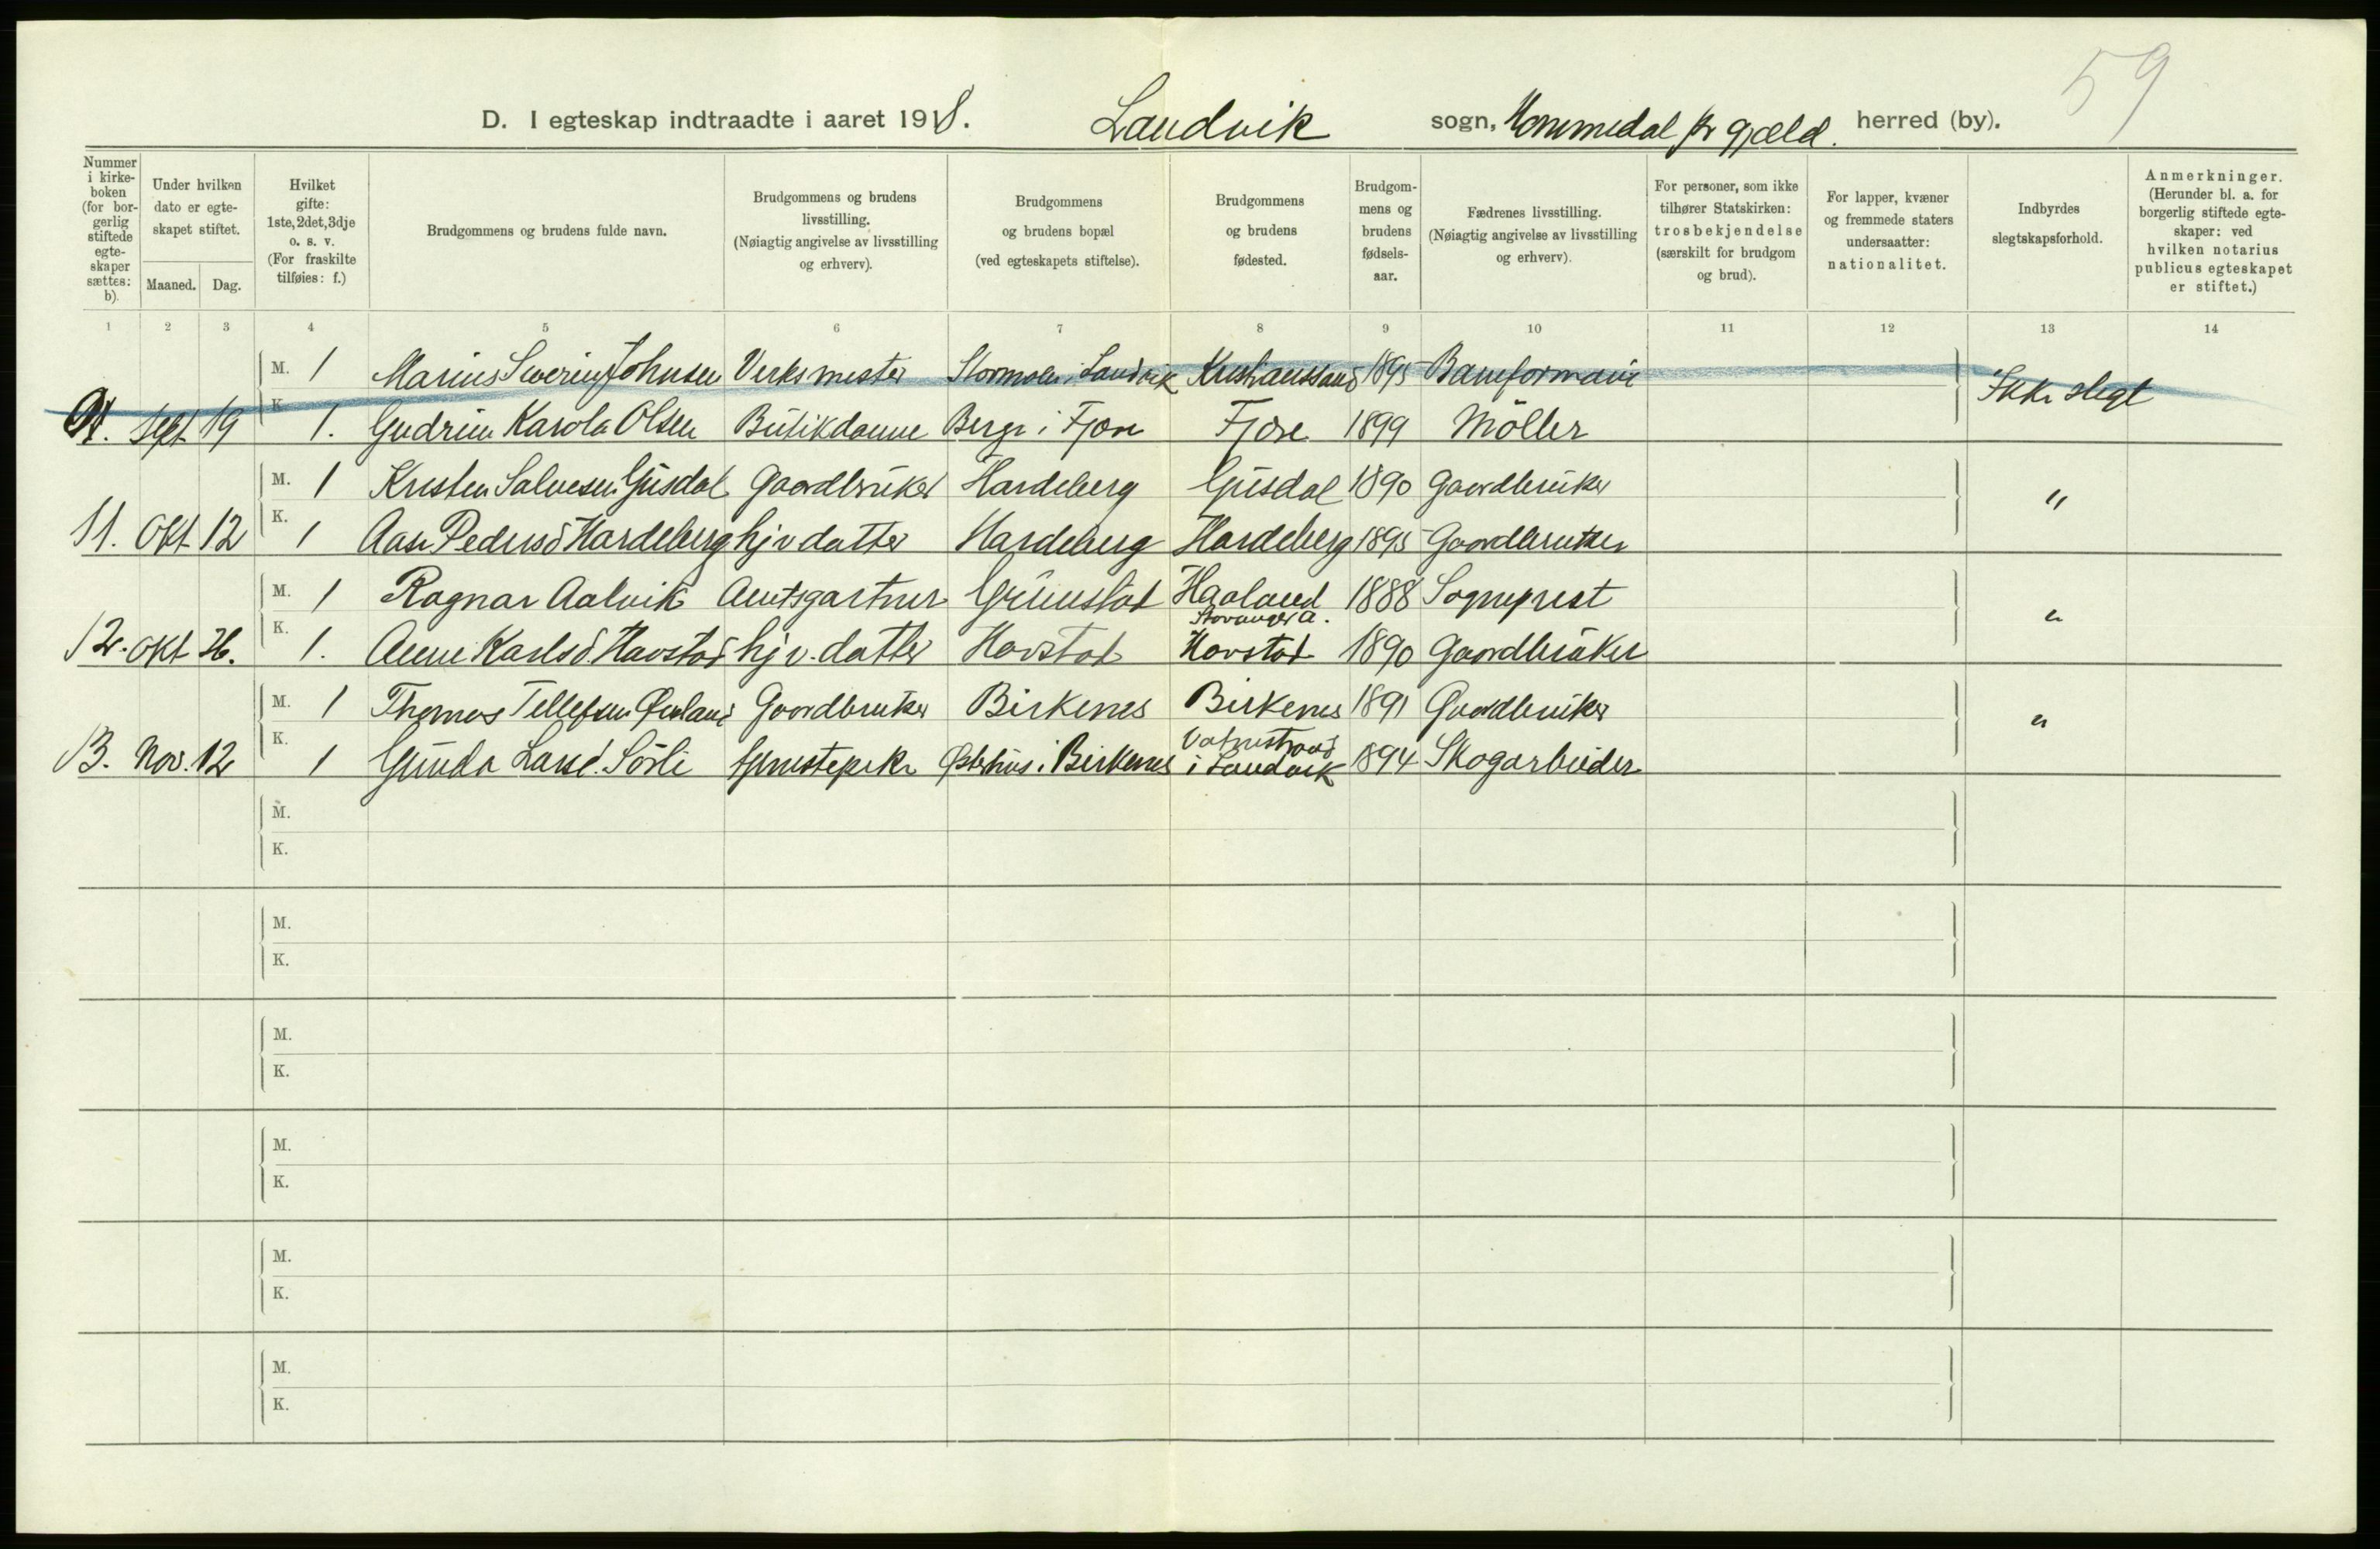 59
D. I egteskap indtraadte i aaret 1918. Landvik sogn, Hommedal pr gjæld. herred (by).
Nummer i kirkeboken (for borgerlig stiftede egteskaper sættes: b).
Under hvilken dato er egteskapet stiftet.
Maaned. Dag.
Hvilket gifte: 1ste, 2det, 3dje o. s. v. (For fraskilte tilføies: f.)
Brudgommens og brudens fulde navn.
Brudgommens og brudens livsstilling. (Nøiagtig angivelse av livsstilling og erhverv).
Brudgommens og brudens bopæl (ved egteskapets stiftelse).
Brudgommens og brudens fødested.
Brudgommens og brudens fødselsaar.
Fædrenes livsstilling. (Nøiagtig angivelse av livsstilling og erhverv).
For personer, som ikke tilhører Statskirken: trosbekjendelse (særskilt for brudgom og brud).
For lapper, kvæner og fremmede staters undersaatter: nationalitet.
Indbyrdes slegtskapsforhold.
Anmerkninger. (Herunder bl. a. for borgerlig stiftede egteskaper: ved hvilken notarius publicus egteskapet er stiftet.)
1 2 3 4 5 6 7 8 9 10 11 12 13 14
M. 1 Marius Severin Johnsen Verksmester i Landvik Kristianssand 1895 Baneformann Ikke slegt
Sept 19 K. 1. Gudrun Karola Olsen Butikdame Berge i Fjære Fjære 1899 Møller
M. 1 Kristen Salvesen Gusdal Gaardbruker Hardeberg Gusdal 1890 Gaardbruker "
11. Okt 12 K. 1 Aase Pedersd Hardeberg hjv datter Hardeberg Hardeberg 1895 Gaardbruker
M. 1 Ragnar Aalvik Amtsgartner Grimstad Haaland Stavanger A. 1888 Sogneprest "
12. Okt 26. K. 1. Anne Karlsd. Havstad hjv. datter Havstad Havstad 1890 Gaardbruker
M. 1 Thomas Tellefsen Gaardbruker Birkenes Birkenes 1891 Gaardbruker "
13. Nov. 12 K. 1 Gunda Larsd. Sörli tjenestepike Østerhus i Birkenes Vatnestrand i Landvik 1894 Skogarbeider
M.
K.
M.
K.
M.
K.
M.
K.
M.
K.
M.
K.